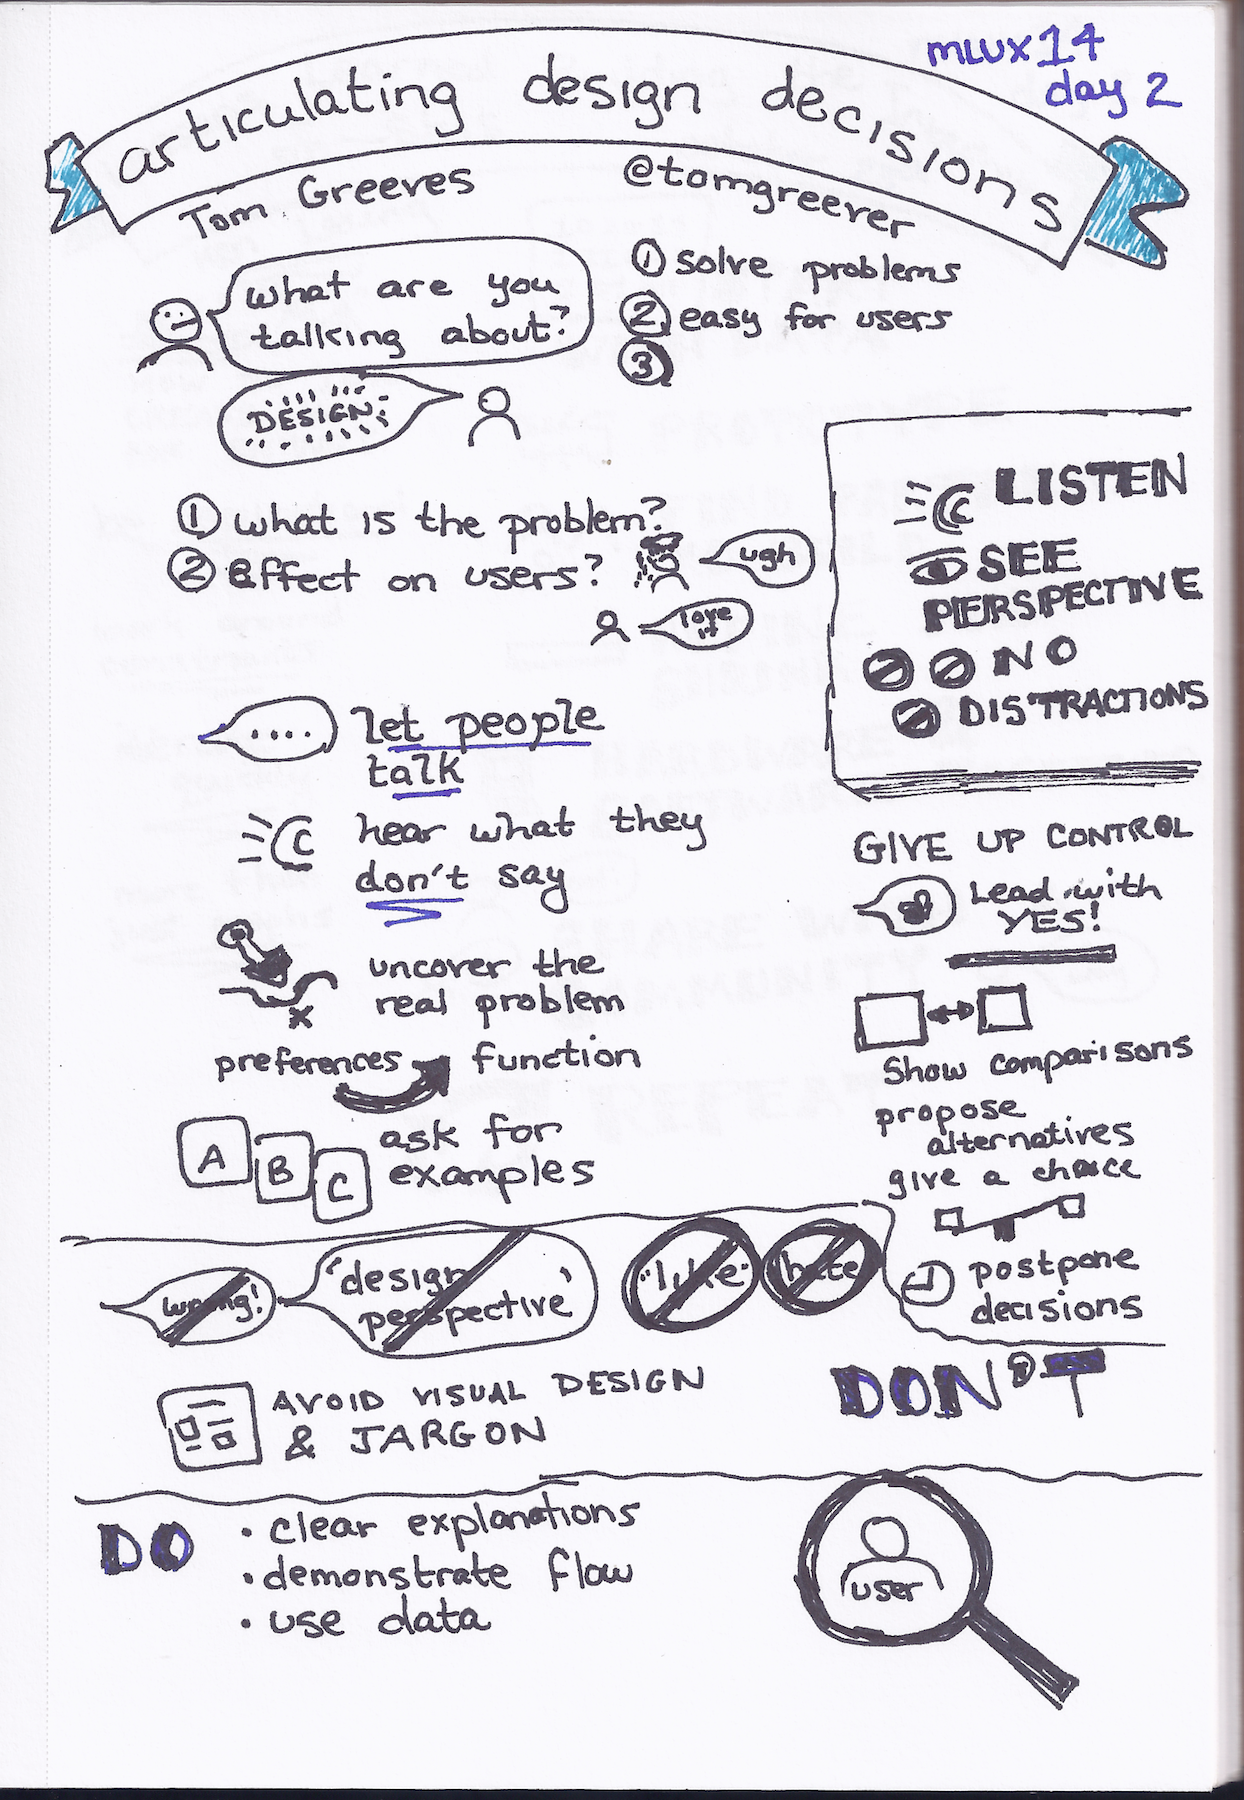 mwux14
day 2
articulating design decisions
Tom Greeves
@tomgreever
what are you
talking about?
DESIGN
1 solve problems
2. easy for users
3
1 what is the problem?
2 effect on users?
ugh
love
it
LISTEN
SEE
PERSPECTIVE
NO
DISTRACTIONS
....
let people
talk
hear what they
don't say
uncover the
real problem
x
preferences function
A B C
ask for
examples
GIVE UP CONTROL
Lead with
YES!
Show comparisons
propose
alternatives
give a choice
postpone
decisions
wrong!
'design
perspective'
"like"
hate
AVOID VISUAL DESIGN
& JARGON
DON'T
DO
· clear explanations
· demonstrate flow
· use data
user